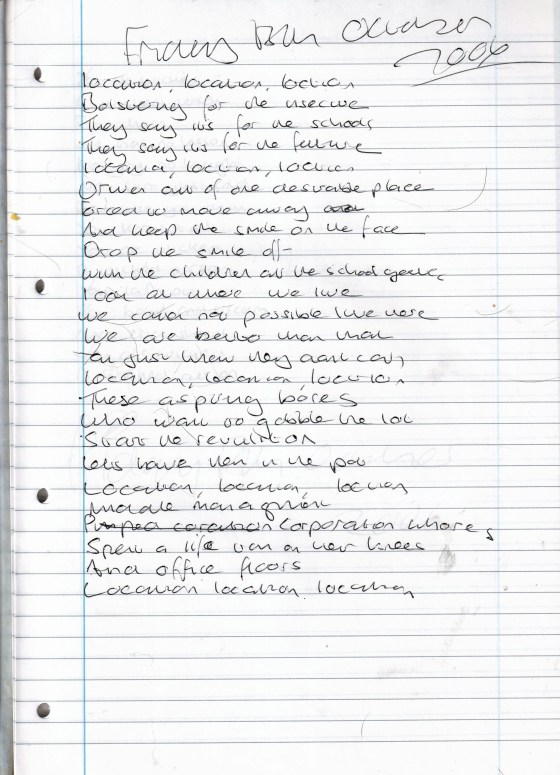 Friday 13th October
2006
Location, location, location
Bolstering for the insecure
They say its for the schools
They say its for the future
Location, location, location
Driven out of one desirable place
Forced to move away
And keep the smile on the face
Drop the smile off
with the children at the school gates
Look at where we live
We could not possible live here
We are better than that
location, location, location
These aspiring bores
Who want to gobble the lot
Start the revolution
Lets have them in the pot
Location, location, location
Middle managment
Corporation whores
Spent a life time on their knees
And office floors
Location location location